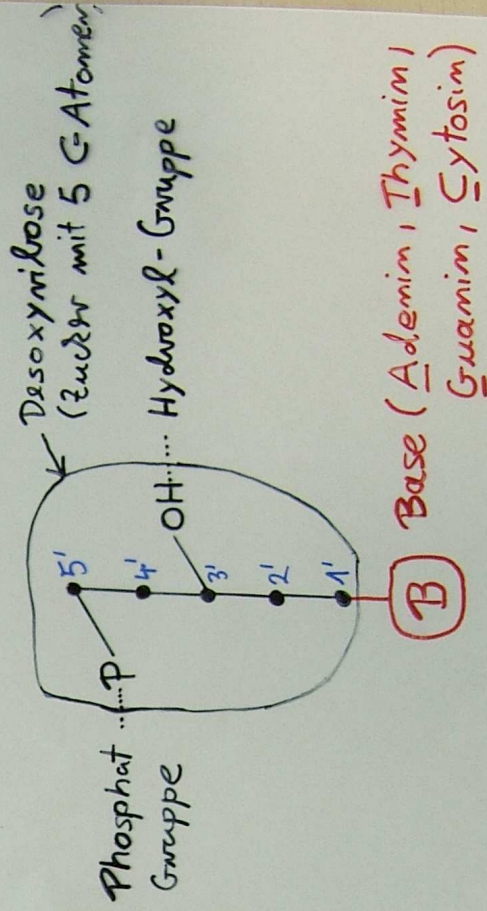 Desoxyribose
(Zucker mit 5 C-Atomen)
5'
Phosphat
Gruppe
P
4'
OH
Hydroxyl-Gruppe
3'
2'
1'
B
Base (Adenin, Thymin,
Guanin, Cytosin)